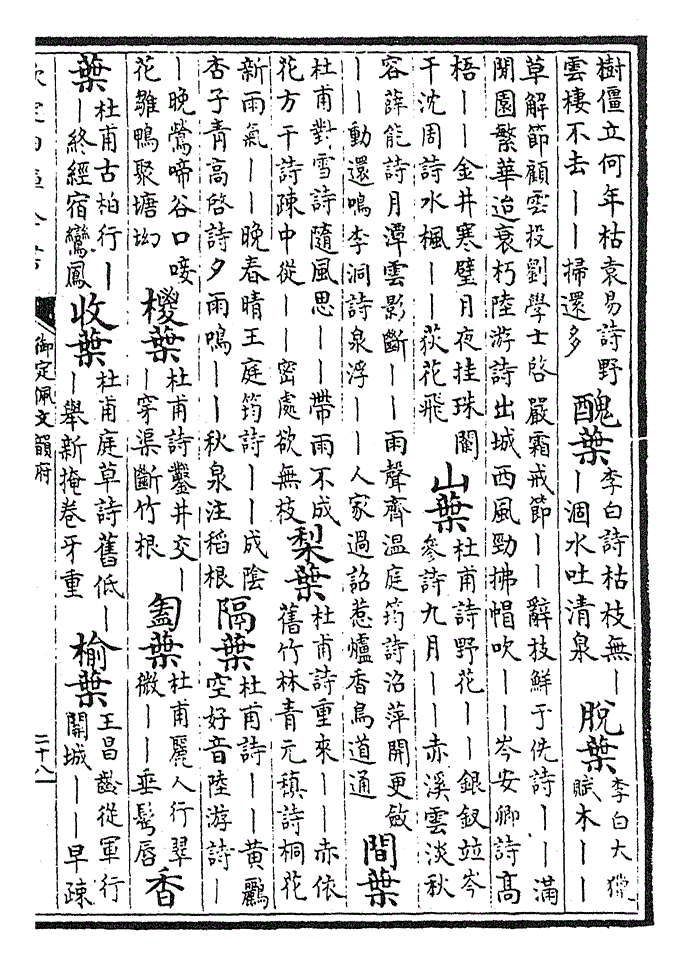 樹僵立何年枯袁易詩野
雲棲不去——掃還多
醜葉
李白詩枯枝無—
—涸水吐清泉
脫葉
李白大獵
賦木——
草解節顧雲投劉學士啓嚴霜戒節——辭枝鮮于侁詩——滿
閒園繁華迨衰朽陸游詩出城西風勁拂帽吹——岑安卿詩高
梧——金井寒璧月夜挂珠闌
干沈周詩水楓——荻花飛
山葉
杜甫詩野花——銀釵竝岑
參詩九月——赤溪雲淡秋
容薛能詩月潭雲影斷——雨聲齊溫庭筠詩沿萍開更斂
——動還鳴李洞詩泉浮——人家過詔惹爐香鳥道通
間葉
杜甫對雪詩隨風思——帶雨不成
花方干詩踈中從——密處欲無枝
梨葉
杜甫詩重來——赤依
舊竹林青元稹詩桐花
新雨氣——晚春晴王庭筠詩——成陰
杏子青高啓詩夕雨鳴——秋泉注稻根
隔葉
杜甫詩——黃鸝
空好音陸游詩—
—晚鶯啼谷口唼
花雛鴨聚塘坳
椶葉
杜甫詩鑿井交—
—穿渠斷竹根
匎葉
杜甫麗人行翠
微——垂鬢唇
香
葉
杜甫古柏行—
—終經宿鸞鳳
收葉
杜甫庭草詩舊低—
—舉新掩卷牙重
榆葉
王昌齡從軍行
關城——早疎
御定佩文韻府
二十八